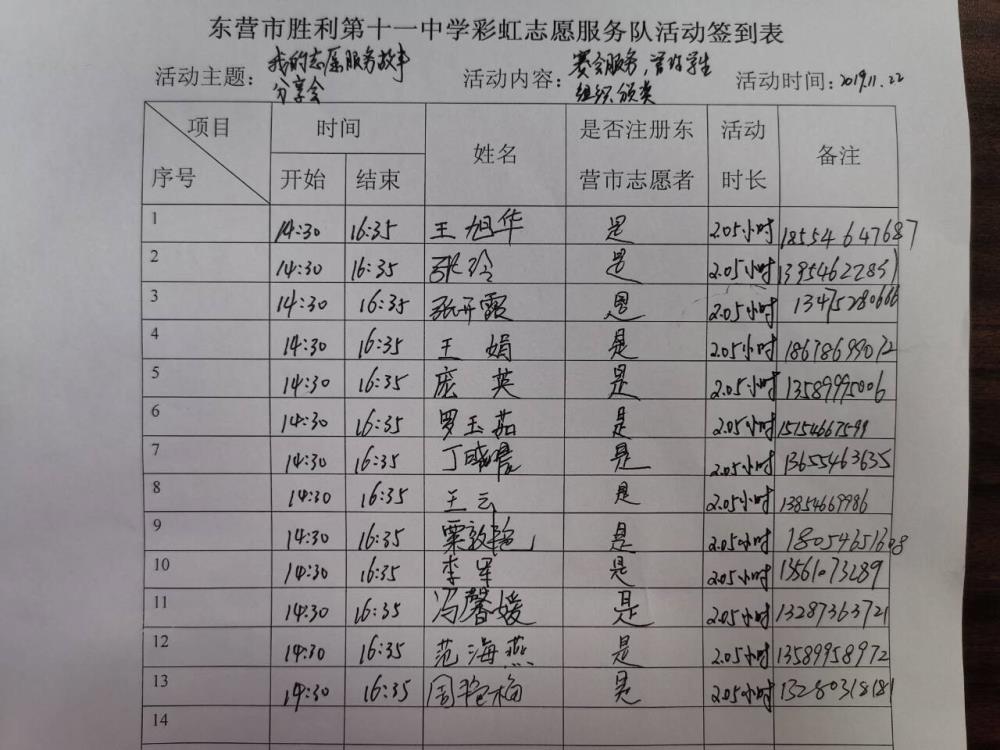 东营市胜利第十一中学彩虹志愿服务队活动签到表
活动主题：我的志愿服务故事分享会 活动内容：赛会服务，管好学生组织颁奖 活动时间：2019.11.22
项目 时间 姓名 是否注册东营市志愿者 活动时长 备注
序号 开始 结束
1 14:30 16:35 王旭华 是 2.05小时 18554647687
2 14:30 16:35 张玲 是 2.05小时
3 14:30 16:35 张开霞 是 2.05小时 13475280666
4 14:30 16:35 王娟 是 2.05小时 18678699072
5 14:30 16:35 庞英 是 2.05小时 13589995006
6 14:30 16:35 罗玉茹 是 2.05小时 15154667599
7 14:30 16:35 丁 是 2.05小时 13655463635
8 14:30 16:35 王云 是 2.05小时 13854669986
9 14:30 16:35 粟敦艳 是 2.05小时
10 14:30 16:35 李军 是 2.05小时 13561073289
11 14:30 16:35 冯馨媛 是 2.05小时 13287363721
12 14:30 16:35 范海燕 是 2.05小时 13589958972
13 14:30 16:35 周艳梅 是 2.05小时 13280318181
14